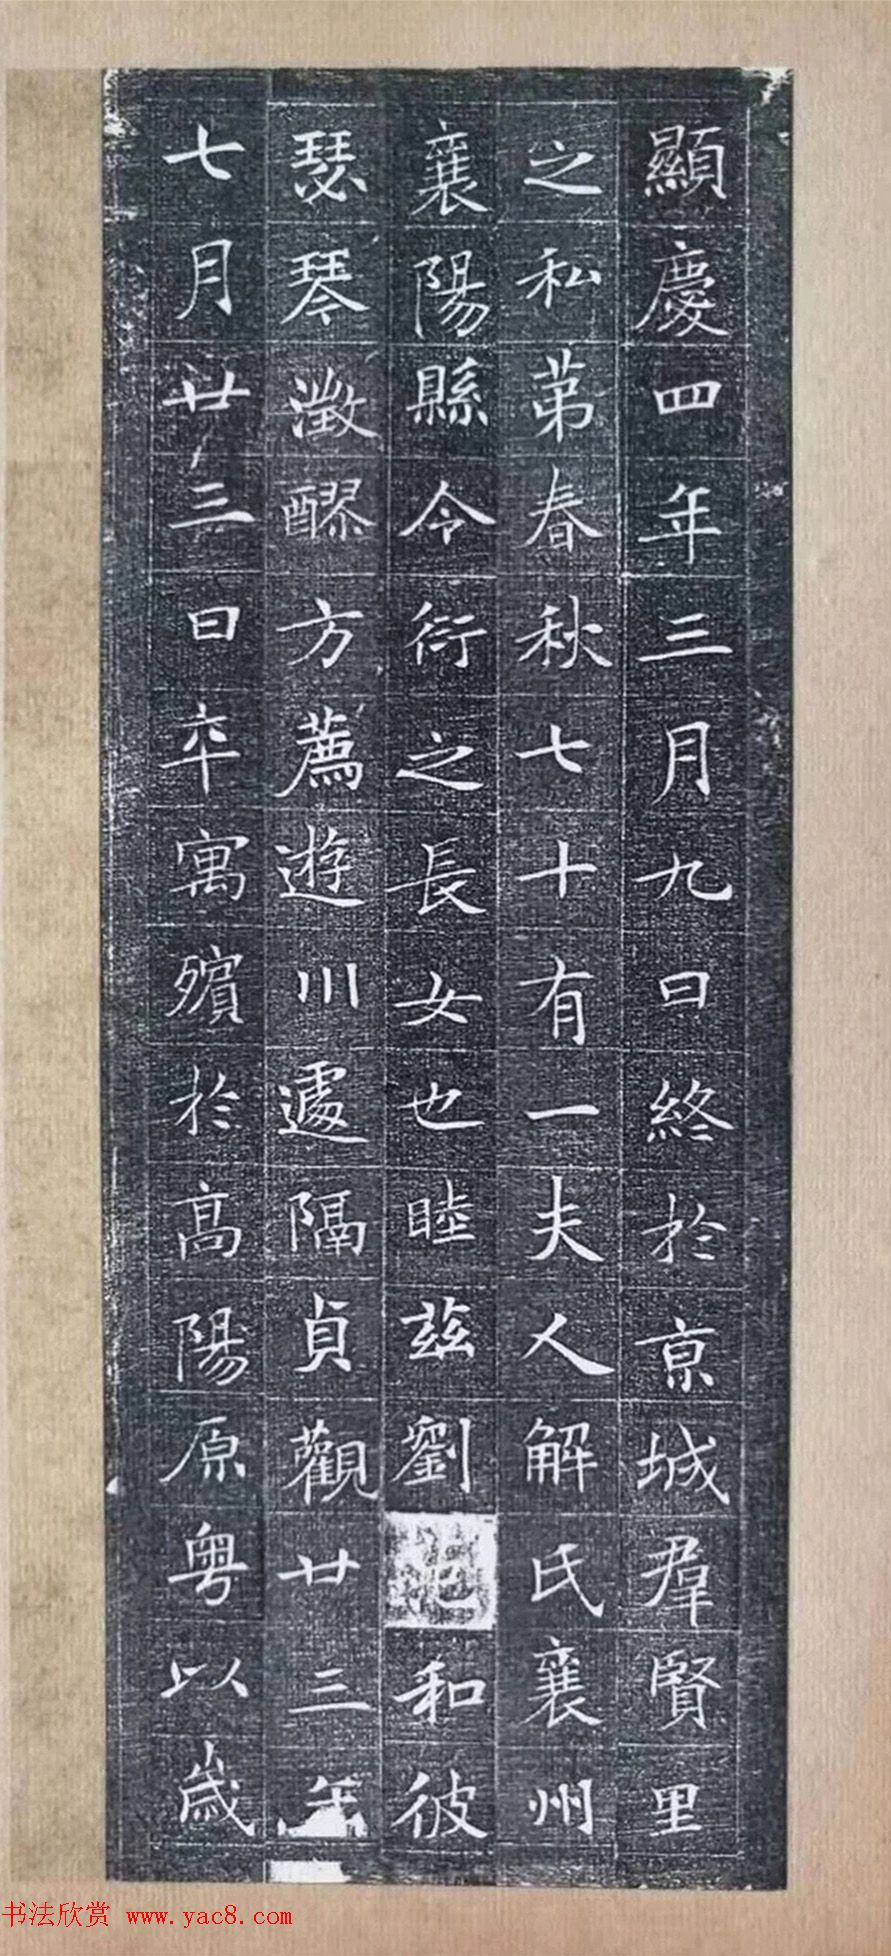 顯慶四年三月九日終於京城群賢里
之私苐春秋七十有一夫人解氏襄州
襄陽縣令衍之長女也睦茲劉和彼
瑟琴澂醪方薦遊川遽隔貞觀廿三年
七月廿三日卒寓殯於高陽原粵以歲
书法欣赏 www.yac8.com